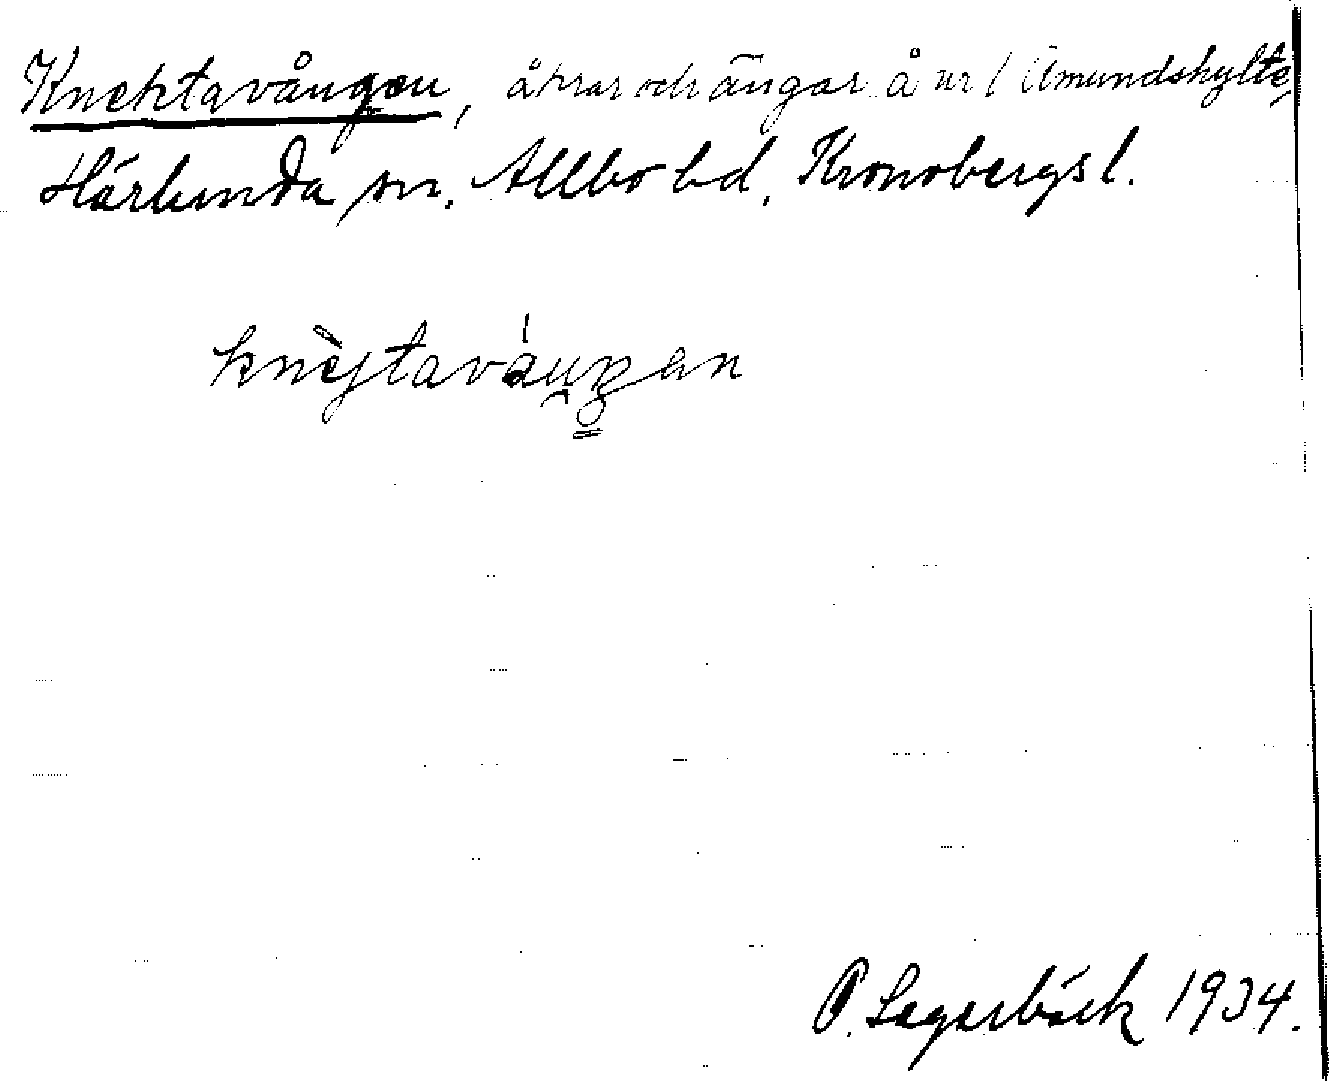 Knektavången, åkrar och ängar å nr 1 Amundshylte,
Härlunda sn. Allbo hd, Kronobergs l.
knektavåŋen
P. Lagerbäck 1934.